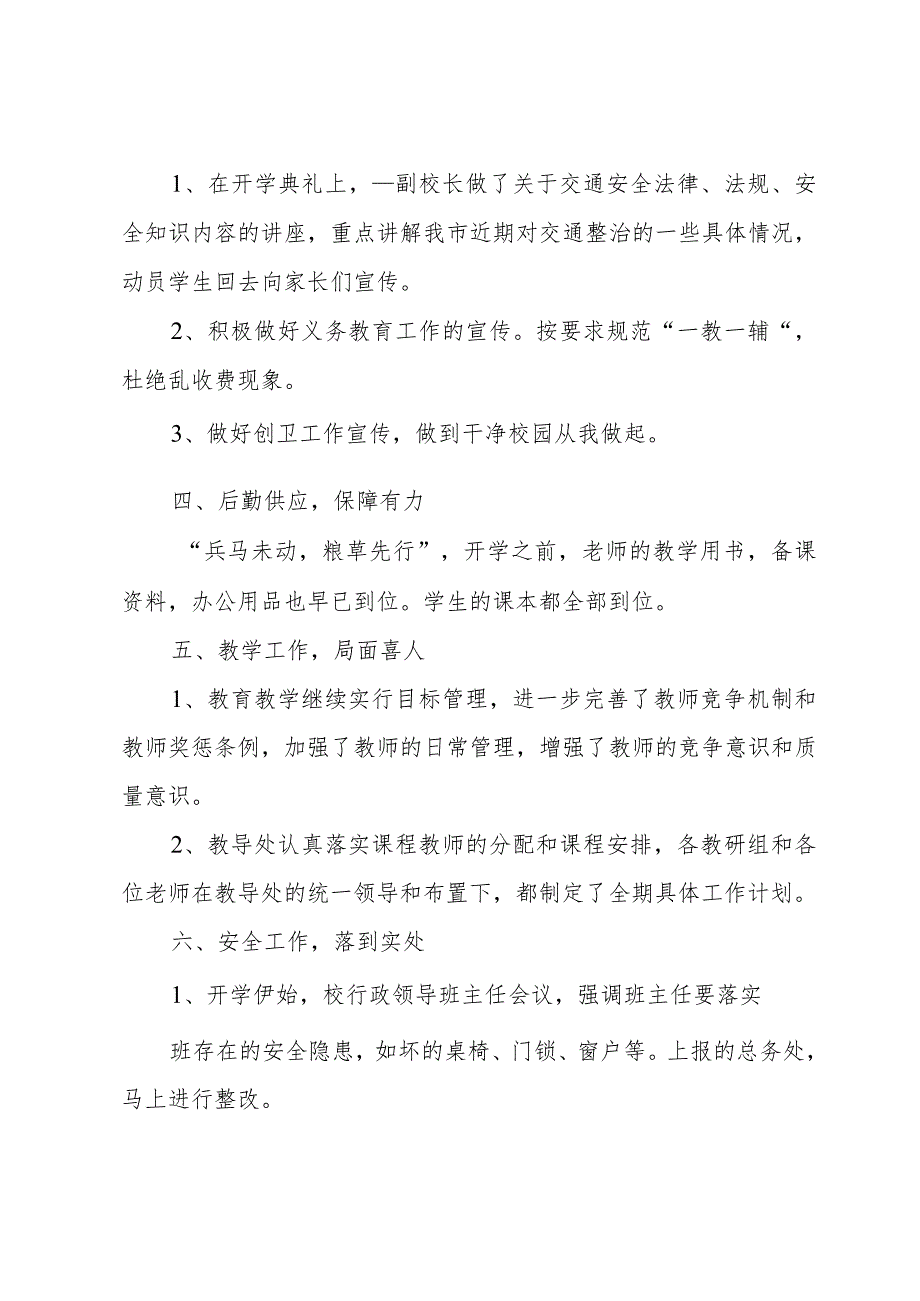 1、在开学典礼上，—副校长做了关于交通安全法律、法规、安
全知识内容的讲座，重点讲解我市近期对交通整治的一些具体情况，
动员学生回去向家长们宣传。
2、积极做好义务教育工作的宣传。按要求规范“一教一辅“，
杜绝乱收费现象。
3、做好创卫工作宣传，做到干净校园从我做起。
四、后勤供应，保障有力
“兵马未动，粮草先行”，开学之前，老师的教学用书，备课
资料，办公用品也早已到位。学生的课本都全部到位。
五、教学工作，局面喜人
1、教育教学继续实行目标管理，进一步完善了教师竞争机制和
教师奖惩条例，加强了教师的日常管理，增强了教师的竞争意识和质
量意识。
2、教导处认真落实课程教师的分配和课程安排，各教研组和各
位老师在教导处的统一领导和布置下，都制定了全期具体工作计划。
六、安全工作，落到实处
1、开学伊始，校行政领导班主任会议，强调班主任要落实
班存在的安全隐患，如坏的桌椅、门锁、窗户等。上报的总务处，
马上进行整改。